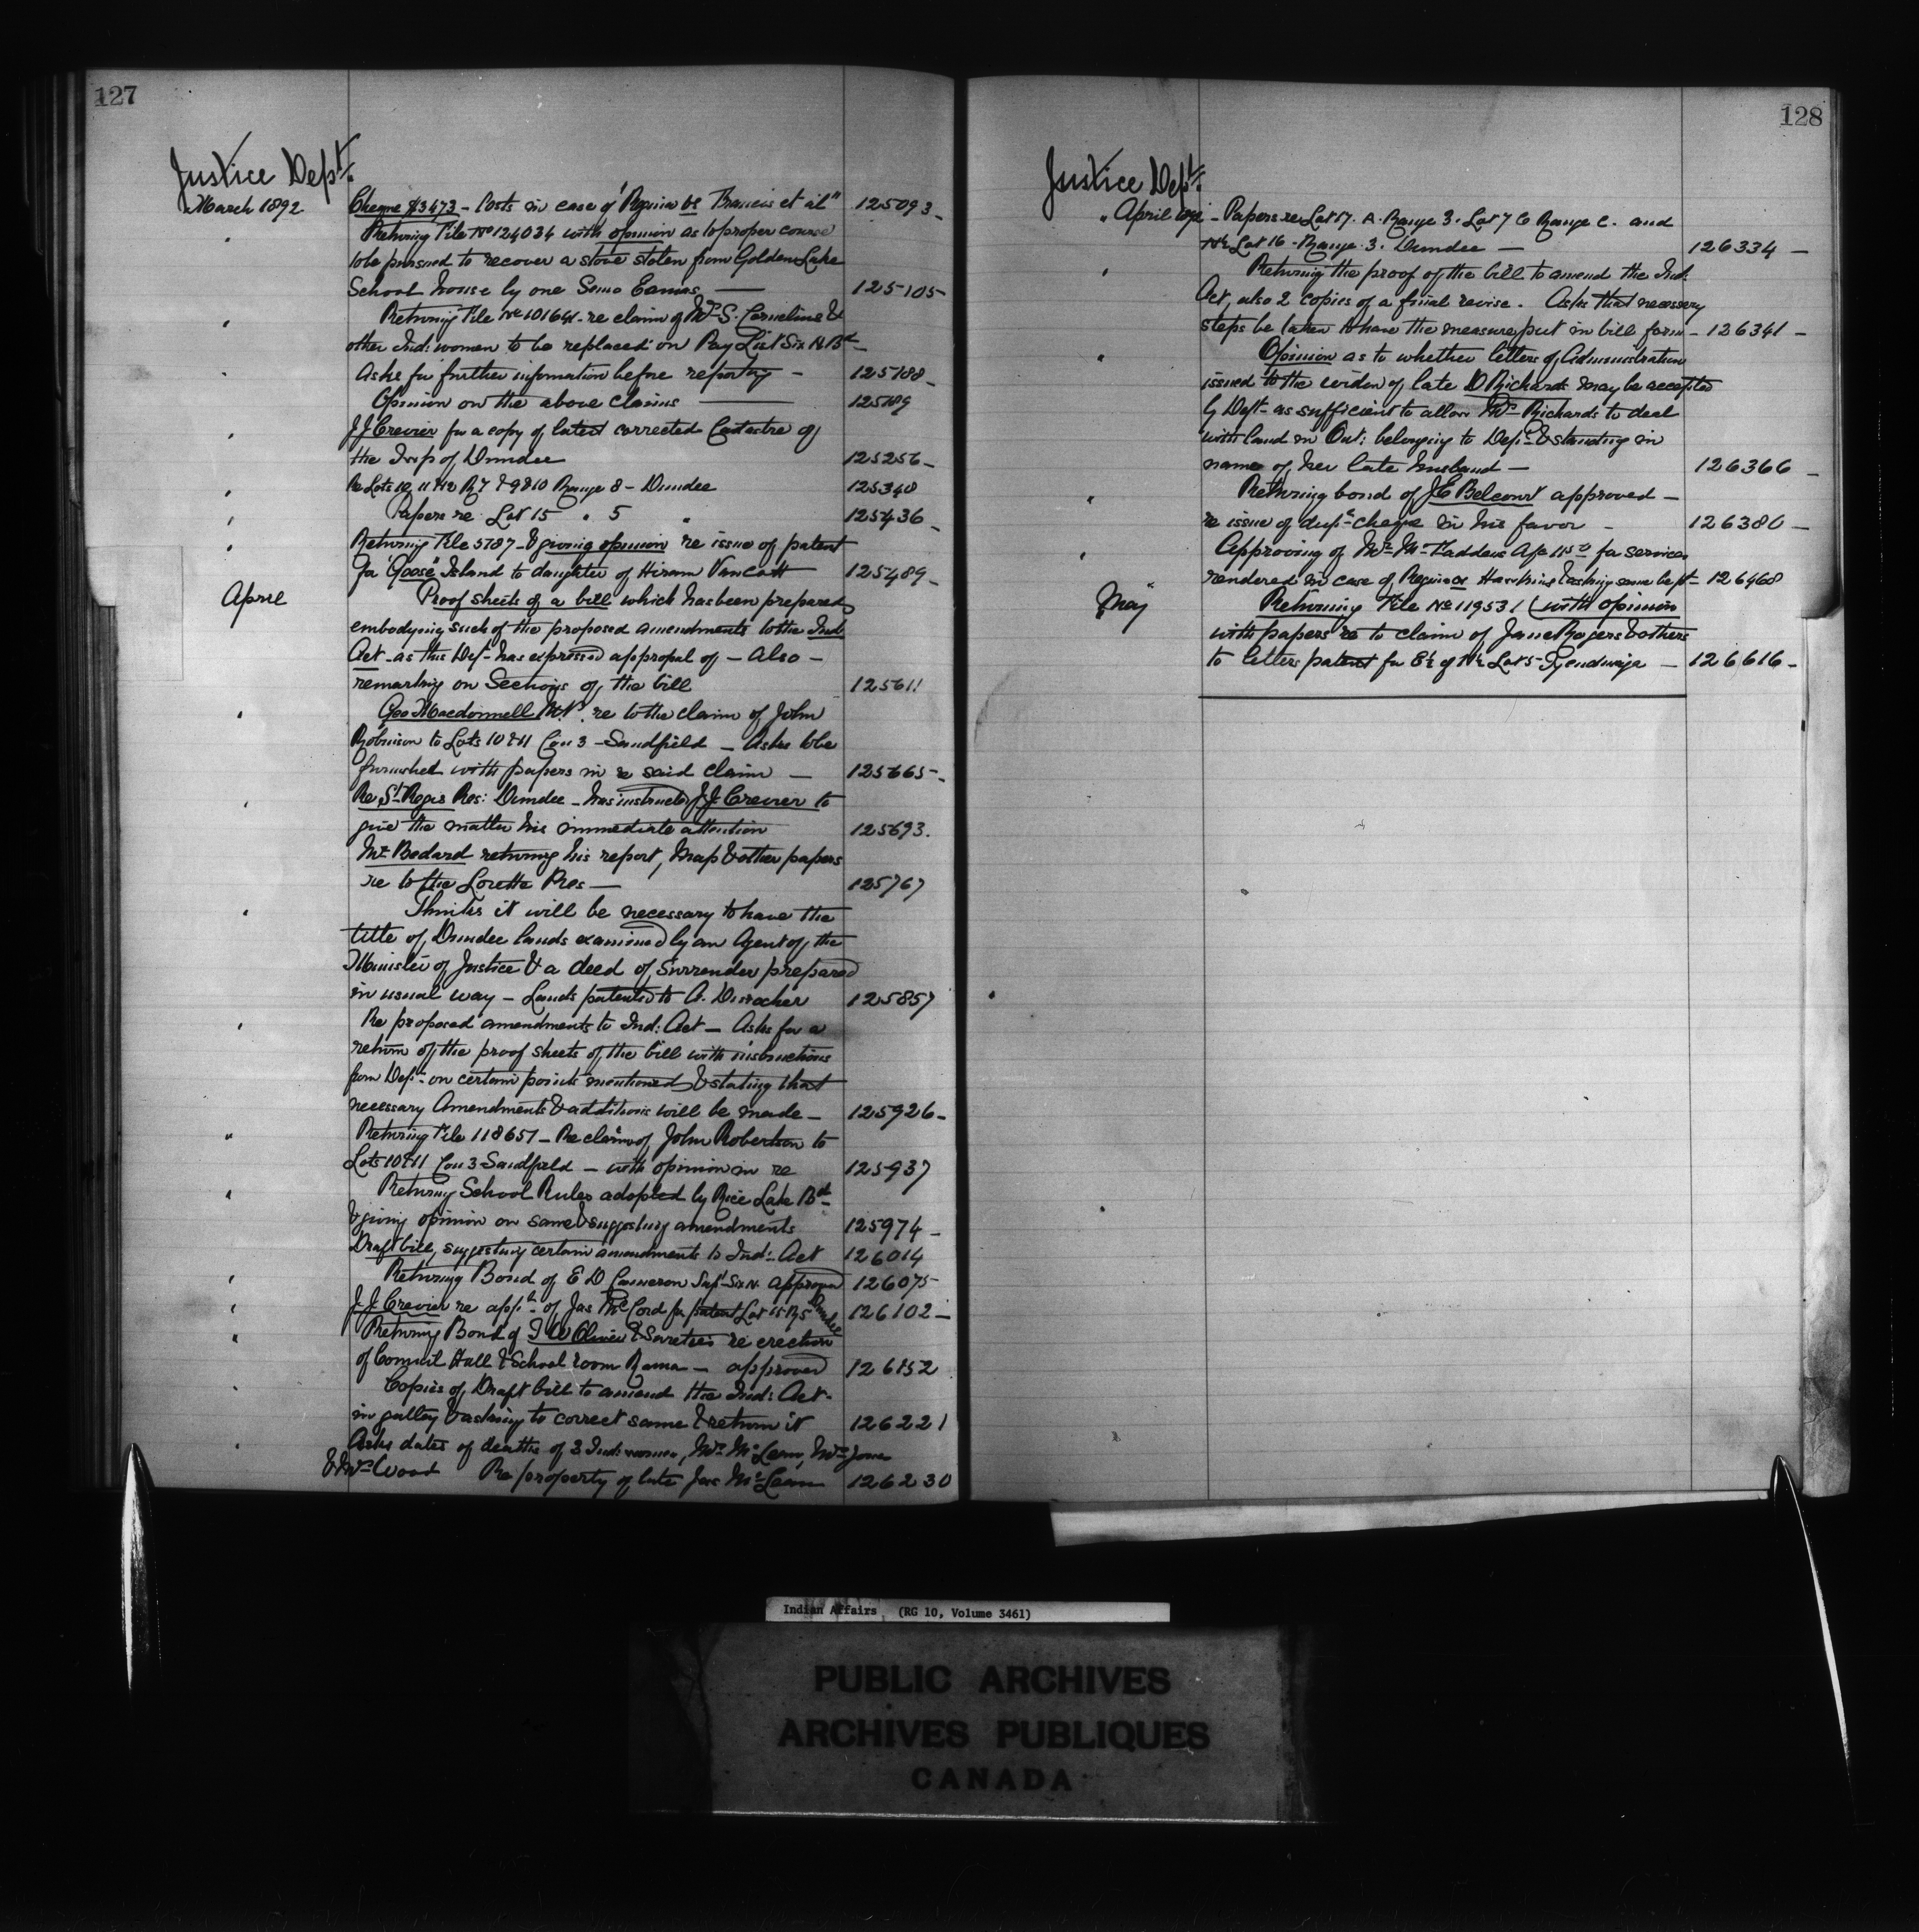 127
Justice Dept.
March 1892 Cheque $3473 - Costs in case of "Regina vs Francis et al" 125093
" Returning File No 124034 with opinion as to proper course
to be pursued to recover a stove stolen from Golden Lake
School house by one 125105
" Returning File No 101641 - re claim of Mrs S. Cornelius &
other Ind: women to be replaced on Pay List Six N. Bd
" Asks for further information before reporting - 125188
Opinion on the above claims 125189
" J J Crevier for a copy of latest corrected Cadastre of
the Twp of Dundee 125256
" Re Lots 10, 11 & 12 R 7 & 9 & 10 Range 8 - Dundee 125340
" Papers re Lot 15 " 5 " 125436
" Returning File 5787 - & giving opinion re issue of patent
for "Goose" Island to daughter of Hiram VanCott 125489
April Proof sheets of a bill which has been prepared
embodying such of the proposed amendments to the Ind
Act - as this Dept has expressed approval of - also -
remarking on Sections of the bill 125611
" Geo Macdonnell M.P. re to the claim of John
Robinson to Lots 10 & 11 Con 3 - Sandfield - Asks to be
furnished with papers in re said claim - 125665
" Re St Regis Res: Dundee - has instructed J.J. Crevier to
give the matter his immediate attention 125693.
Mr Bedard returning his report, Map & other papers
re to the Lorette Res - 125767
" Thinks it will be necessary to have the
title of Dundee lands examined by an Agent of the
Minister of Justice & a deed of Surrender prepared
in usual way - Lands patented to A. 125857
" Re proposed amendments to Ind: Act - Asks for a
return of the proof sheets of the bill with instructions
from Dept - on certain points mentioned & stating that
necessary Amendments & additions will be made - 125926
" Returning File 118657 - Re claim of John Robertson to
Lots 10 & 11 Con 3 Sandfield - with opinion in re 125937
" Returning School Rules adopted by Rice Lake Bd
& giving opinion on same & suggesting amendments 125974
Draft bill, suggesting certain amendments to Ind: Act 126014
" Returning Bond of E D Cameron Supt Six N. approved 126075
" J. J. Crevier re appn of Jas McCord for patent Lot 15 R 5 Dundee 126102
" Returning Bond of & Sureties re erection
of Council Hall & School room Rama - approved 126152
" Copies of Draft bill to amend the Ind: Act -
in galley & asking to correct same & return it 126221
" Asks dates of deaths of 3 Ind: women, Mrs McLean, Mrs Jones
& Mrs Wood Re property of late Jas McLean 126230
128
Justice Dept.
" April 1892 - Papers re Lot 17. A. Range 3. Lot 7 C Range C. and
N½ Lot 16 - Range 3. Dundee - 126334
" Returning the proof of the bill to amend the Ind:
Act, also 2 copies of a final revise. Asks that necessary
steps be taken to have the measure put in bill form - 126341
" Opinion as to whether letters of Administration
issued to the widow of late D Richards may be accepted
by Dept - as sufficient to allow Mrs Richards to deal
with land in Ont: belonging to Dept & standing in
name of her late husband - 126366
" Returning bond of J E Belcourt approved -
re issue of dup. cheque in his favor - 126380
" Approving of Mr McFaddens A/c for services
rendered in case of Regina vs Hawkins & asking same be pt - 126468
May Returning File No 119531 (with opinion
with papers re to claim of Jane Rogers & others
to letters patent for E½ of N½ Lot 5 - Tyendinaga - 126616
Indian Affairs (RG 10, Volume 3461)
PUBLIC ARCHIVES
ARCHIVES PUBLIQUES
CANADA